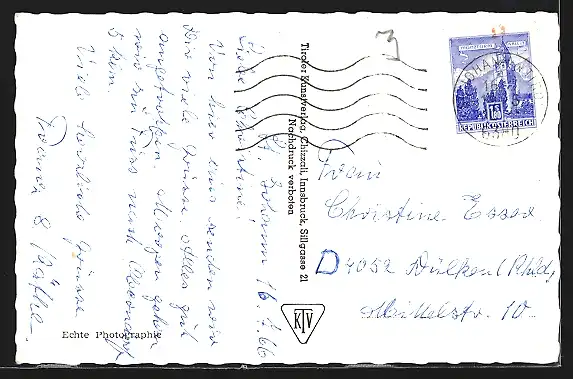 St. Johann 16.7.66
Liebe Christine!
Von hier aus senden wir
Dir viele Grüsse. Alles gut
angetroffen. Morgen gehen
wir zu Fuss nach Oberndorf
5 km.
Viele herzliche Grüsse
Yvonne & Käthe.
Tiroler Kunstverlag, Chizzali, Innsbruck, Sillgasse 21
Nachdruck verboten
Echte Photographie
KTV
3
REPUBLIK ÖSTERREICH
Frau
Christine Esser
D 4052 Dülken (Rhld)
Mittelstr. 10